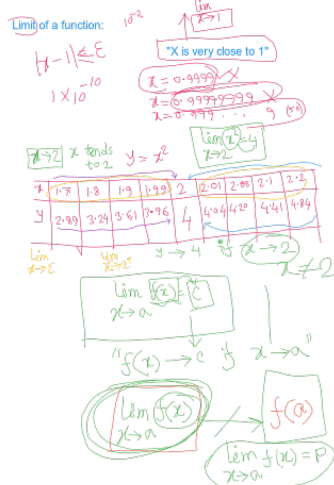 Limit of a function:
10⁻²
lim
x→1
|x-1| ≤ ε
1 × 10⁻¹⁰
"X is very close to 1"
x = 0.9999 X
x = 0.99999999 X
x = 0.999 . . . 9
x→2 x tends to 2 y = x²
lim x² = 4
x→2
x 1.7 1.8 1.9 1.99 2 2.01 2.05 2.1 2.2
y 2.89 3.24 3.61 3.96 4 4.04 4.20 4.41 4.84
lim
x→2⁻
lim
x→2⁻
y → 4 if x→2
x ≠ 2
lim f(x) = c
x→a
"f(x) → c if x→a"
lim f(x)
x→a
f(a)
lim f(x) = P
x→a